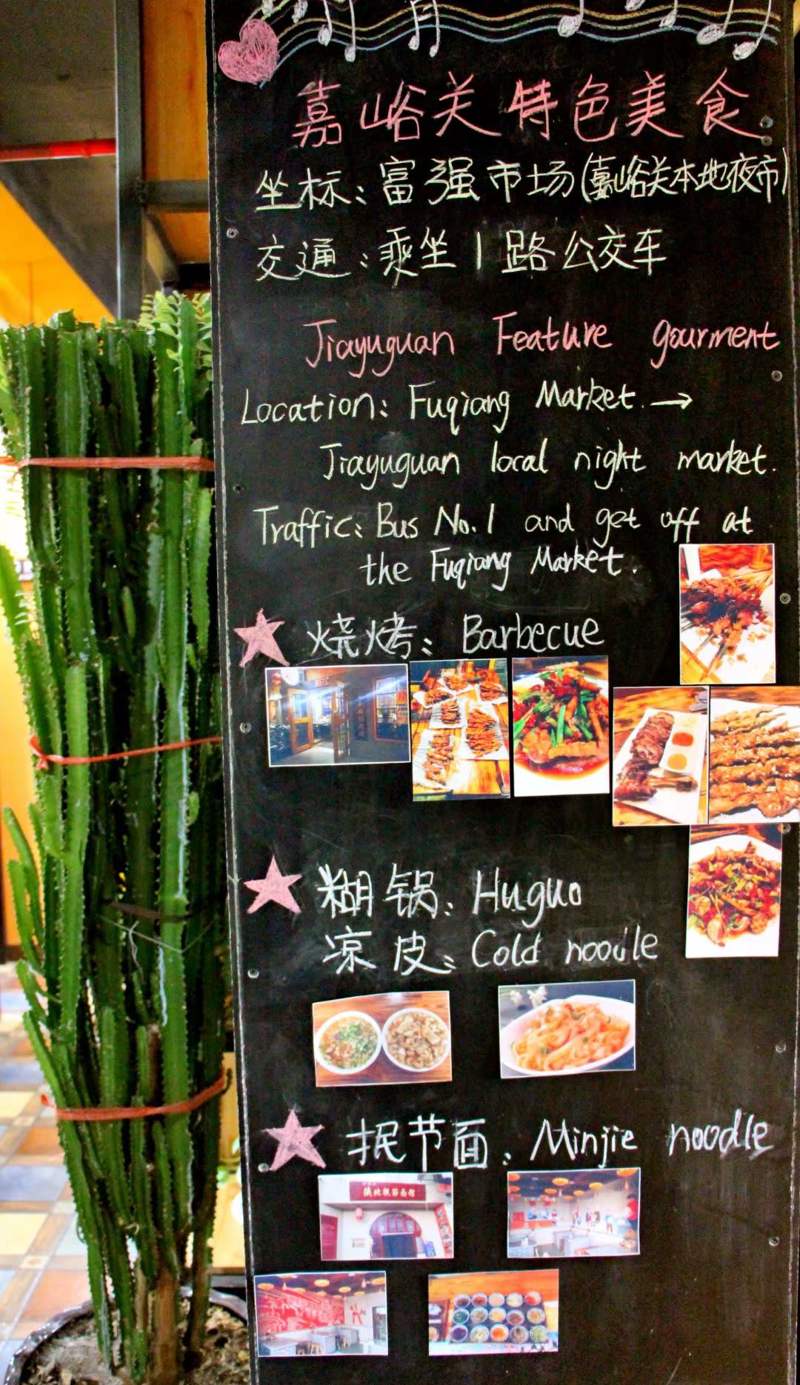 嘉峪关特色美食
坐标：富强市场(嘉峪关本地夜市)
交通：乘坐1路公交车
Jiayuguan Feature gourment
Location: Fuqiang Market. →
Jiayuguan local night market.
Traffic: Bus No.1 and get off at
the Fuqiang Market.
烧烤：Barbecue
糊锅：Huguo
凉皮：Cold noodle
抿节面：Minjie noodle